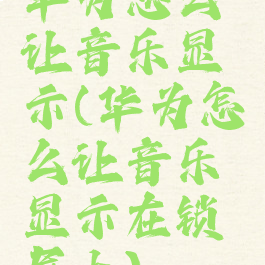 华为怎么
让音乐显
示(华为怎
么让音乐
显示在锁